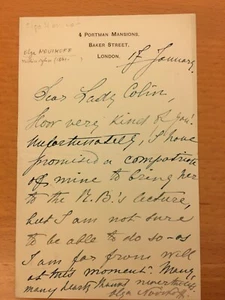 Olga NOVIKOFF
4 PORTMAN MANSIONS.
BAKER STREET,
LONDON.
17 January
Dear Lady Colin,
How very kind of you!
Unfortunately, I have
promised a compatriote
of mine to bring her
to the B.B's lecture,
but I am not sure
to be able to do so - as
I am far from well
at this moment. Many
many hearty thanks nevertheless
Olga Novikoff